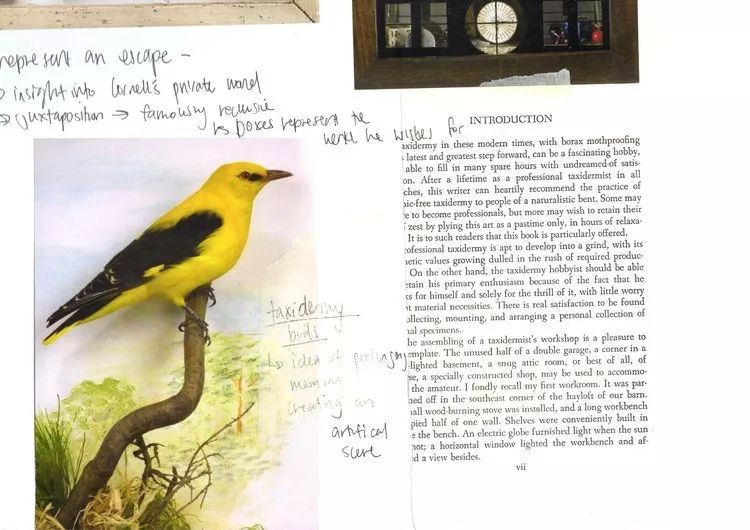 represent an escape –
→ insight into Cornell's private world
→ juxtaposition → famously reclusive
↳ boxes represent the
world he wishes for
INTRODUCTION
axidermy in these modern times, with borax mothproofing
latest and greatest step forward, can be a fascinating hobby,
able to fill in many spare hours with undreamed-of satis-
on. After a lifetime as a professional taxidermist in all
ches, this writer can heartily recommend the practice of
ic-free taxidermy to people of a naturalistic bent. Some may
e to become professionals, but more may wish to retain their
zest by plying this art as a pastime only, in hours of relaxa-
It is to such readers that this book is particularly offered.
ofessional taxidermy is apt to develop into a grind, with its
etic values growing dulled in the rush of required produc-
On the other hand, the taxidermy hobbyist should be able
etain his primary enthusiasm because of the fact that he
ks for himself and solely for the thrill of it, with little worry
t material necessities. There is real satisfaction to be found
ollecting, mounting, and arranging a personal collection of
al specimens.
he assembling of a taxidermist's workshop is a pleasure to
emplate. The unused half of a double garage, a corner in a
-lighted basement, a snug attic room, or best of all, of
se, a specially constructed shop, may be used to accommo-
the amateur. I fondly recall my first workroom. It was par-
ned off in the southeast corner of the hayloft of our barn.
all wood-burning stove was installed, and a long workbench
pied half of one wall. Shelves were conveniently built in
e the bench. An electric globe furnished light when the sun
not; a horizontal window lighted the workbench and af-
d a view besides.
vii
taxidermy
birds
↳ idea of prolonging
memory
creating an
artificial
scene